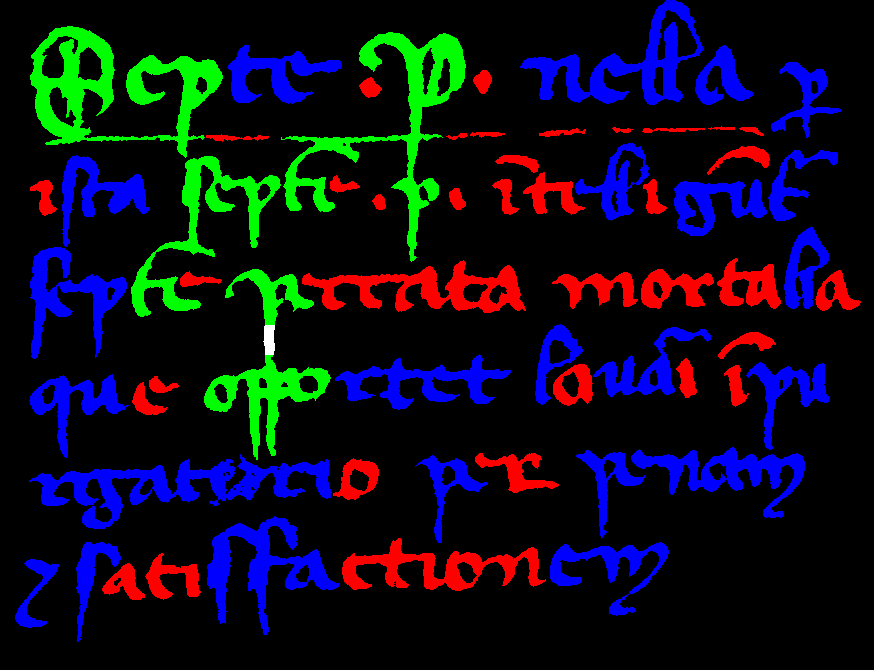 Septe · p · nella p
ista septē · p · ītelligūt
septē peccata mortalia
que opportet lauāi ī pu
rgatorio per penam
⁊ satisfactionem